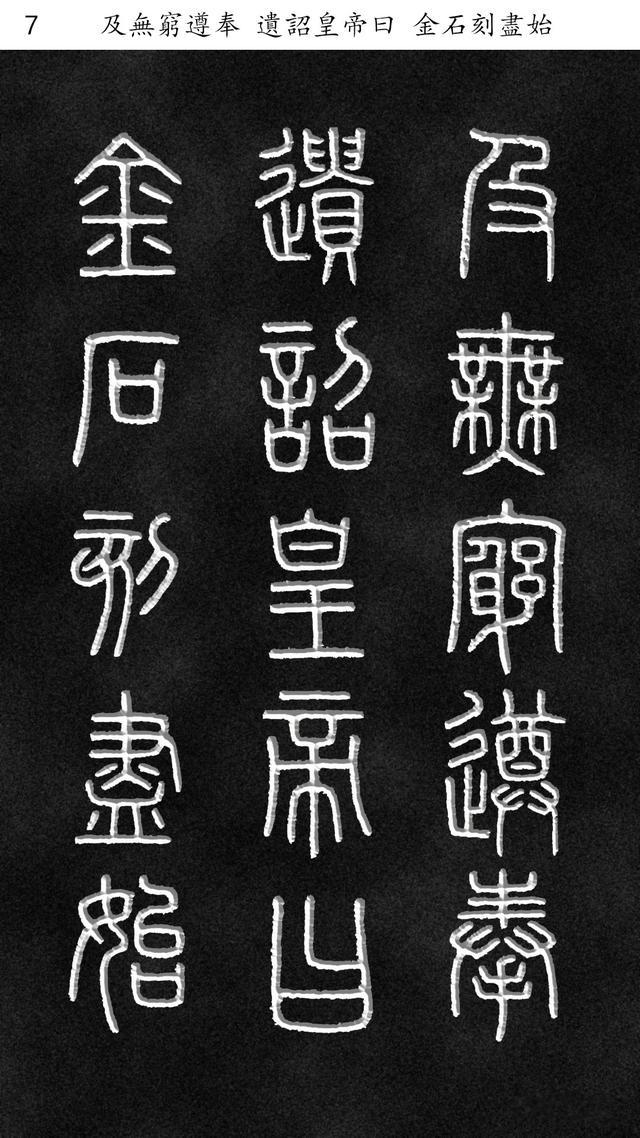 7 及無窮遵奉 遺詔皇帝曰 金石刻盡始
及無窮遵奉
遺詔皇帝曰
金石刻盡始